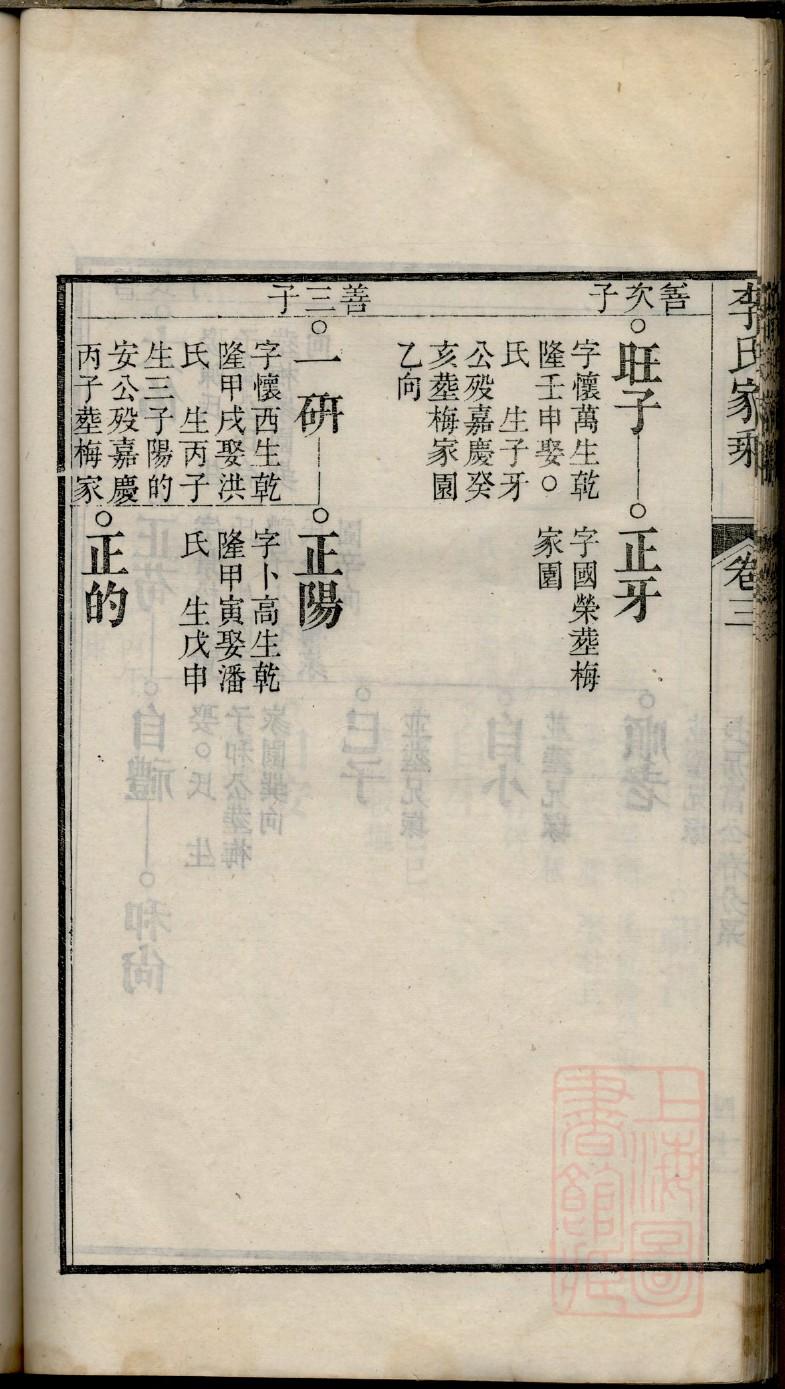 李氏家乘
卷三
善次子
旺子
字懷萬生乾
隆壬申娶○
氏　生子牙
公殁嘉慶癸
亥塟梅家園
乙向
正牙
字國榮塟梅
家園
善三子
一硏
字懷西生乾
隆甲戌娶洪
氏　生丙子
生三子陽的
安公殁嘉慶
丙子塟梅家
正陽
字卜高生乾
隆甲寅娶潘
氏　生戊申
正的
上海圖
書館藏